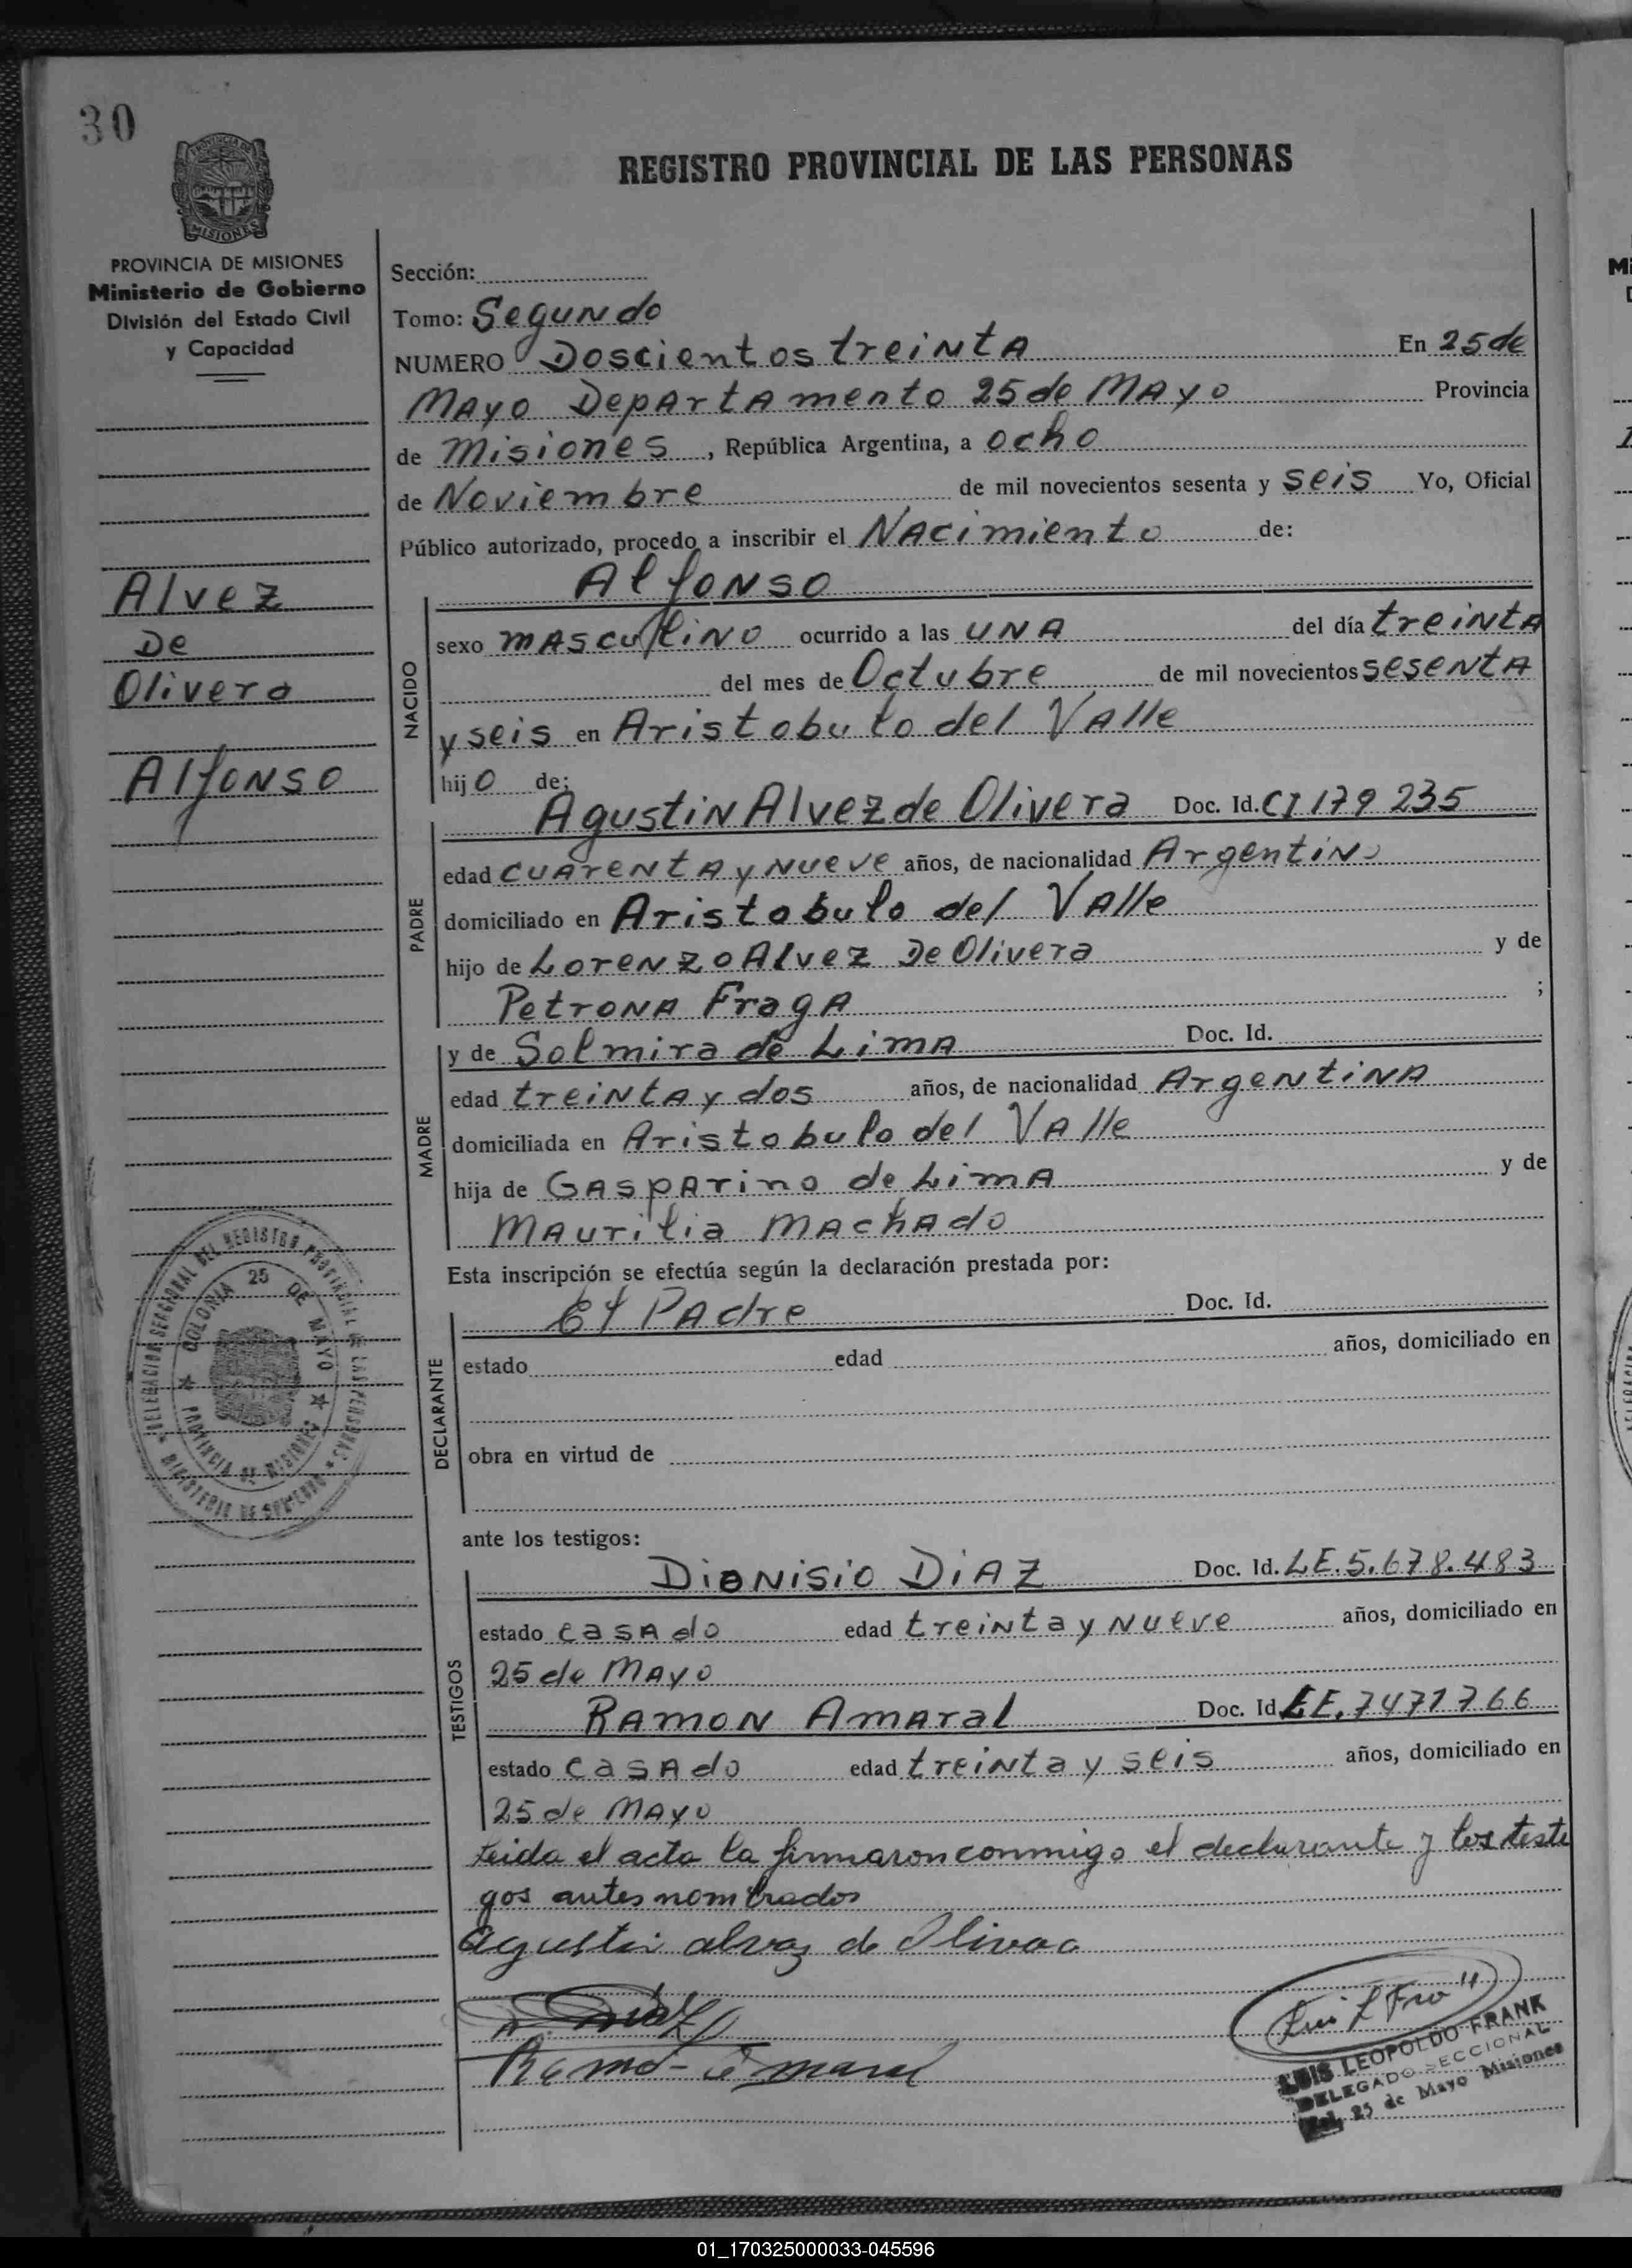 30
PROVINCIA DE
MISIONES
REGISTRO PROVINCIAL DE LAS PERSONAS
PROVINCIA DE MISIONES
Ministerio de Gobierno
División del Estado Civil
y Capacidad
Alvez
De
Olivera
Alfonso
Sección:
Tomo: Segundo
NUMERO Doscientos treinta En 25 de
Mayo Departamento 25 de Mayo Provincia
de Misiones, República Argentina, a ocho
de Noviembre de mil novecientos sesenta y seis Yo, Oficial
Público autorizado, procedo a inscribir el Nacimiento de:
Alfonso
NACIDO
sexo masculino ocurrido a las una del día treinta
del mes de Octubre de mil novecientos sesenta
y seis en Aristobulo del Valle
hijo de:
PADRE
Agustin Alvez de Olivera Doc. Id. CI 179 235
edad cuarenta y nueve años, de nacionalidad Argentino
domiciliado en Aristobulo del Valle
hijo de Lorenzo Alvez De Olivera y de
Petrona Fraga ;
MADRE
y de Solmira de Lima Doc. Id.
edad treinta y dos años, de nacionalidad Argentina
domiciliada en Aristobulo del Valle
hija de Gasparino de Lima y de
Maurilia Machado
Esta inscripción se efectúa según la declaración prestada por:
DECLARANTE
El Padre Doc. Id.
estado edad años, domiciliado en
obra en virtud de
DELEGACION SECCIONAL DEL REGISTRO PROVINCIAL DE LAS PERSONAS
MINISTERIO DE GOBIERNO
COLONIA 25 DE MAYO
PROVINCIA DE MISIONES
ante los testigos:
TESTIGOS
Dionisio Diaz Doc. Id. LE. 5.678.483
estado casado edad treinta y nueve años, domiciliado en
25 de Mayo
Ramon Amaral Doc. Id LE. 7471766
estado casado edad treinta y seis años, domiciliado en
25 de Mayo
Leida el acta la firmaron conmigo el declarante y los testi
gos antes nombrados
Agustin alvez de Olivera
Diaz
Ramon Amaral
LUIS LEOPOLDO FRANK
DELEGADO SECCIONAL
25 de Mayo Misiones
01_170325000033-045596